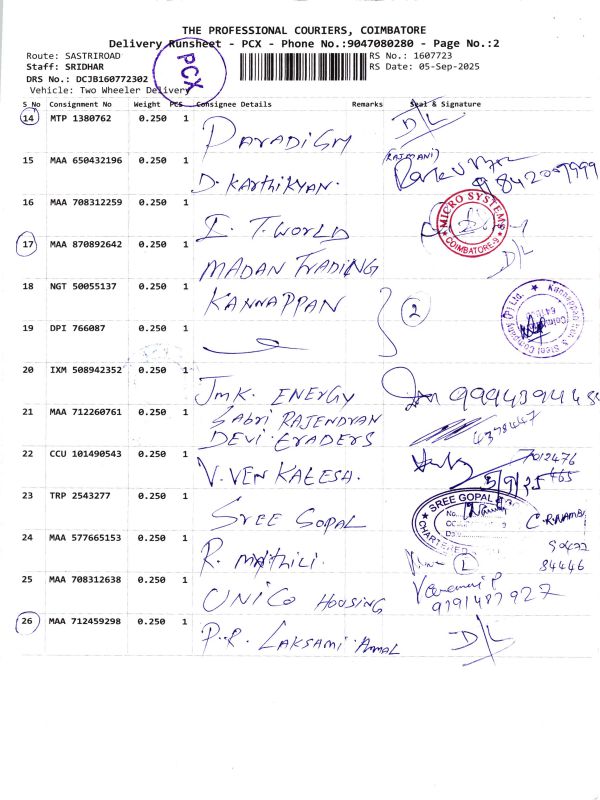 THE PROFESSIONAL COURIERS, COIMBATORE
Delivery Runsheet - PCX - Phone No.:9047080280 - Page No.:2
Route: SASTRIROAD RS No.: 1607723
Staff: SRIDHAR RS Date: 05-Sep-2025
DRS No.: DCJB160772302
Vehicle: Two Wheeler Delivery
PCX
S_No Consignment No Weight PCS Consignee Details Remarks Seal & Signature
14 MTP 1380762 0.250 1 PARADIGM D/L
15 MAA 650432196 0.250 1 D. KARTHIKYAN. (RAJMANI)
16 MAA 708312259 0.250 1 I. T. WORLD MICRO SYSTEMS COIMBATORE-9
17 MAA 870892642 0.250 1 MADAN TRADING D/L
18 NGT 50055137 0.250 1 KANNAPPAN 2
19 DPI 766087 0.250 1
20 IXM 508942352 0.250 1 JMK. ENERGY
21 MAA 712260761 0.250 1 SABRI RAJENDRAN 4378447
DEVI TRADERS
22 CCU 101490543 0.250 1 V. VENKATESA. 7012476
5/9/25 465
23 TRP 2543277 0.250 1 SREE GOPAL SREE GOPAL CHARTERED C.R.NAMBI
24 MAA 577665153 0.250 1 R. MATHILI. L 90422
84446
25 MAA 708312638 0.250 1 UNICO HOUSING
9791487927
26 MAA 712459298 0.250 1 P.R. LAKSAMI AMMAL D/L